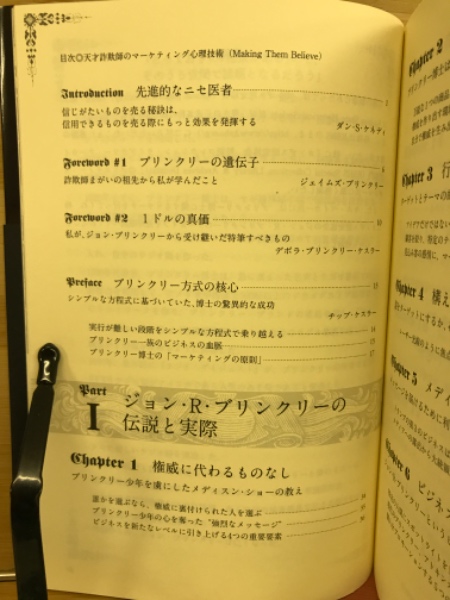 目次◎天才詐欺師のマーケティング心理技術 (Making Them Believe)
Introduction 先進的なニセ医者
信じがたいものを売る秘訣は、
信用できるものを売る際にもっと効果を発揮する
ダン・S・ケネディ
Foreword #1 ブリンクリーの遺伝子
詐欺師まがいの祖先から私が学んだこと
ジェイムズ・ブリンクリー
Foreword #2 1ドルの真価 10
私が、ジョン・ブリンクリーから受け継いだ特筆すべきもの
デボラ・ブリンクリー・ケスラー
Preface ブリンクリー方式の核心 13
シンプルな方程式に基づいていた、博士の驚異的な成功
チップ・ケスラー
実行が難しい段階をシンプルな方程式で乗り越える 14
ブリンクリー一族のビジネスの血脈 15
ブリンクリー博士の「マーケティングの原則」 17
Part I ジョン・R・ブリンクリーの
伝説と実際
Chapter 1 権威に代わるものなし
ブリンクリー少年を虜にしたメディスン・ショーの教え
誰かを選ぶなら、権威に裏付けられた人を選ぶ
ブリンクリー少年の心を奪った“強烈なメッセージ”
ビジネスを新たなレベルに引き上げる4つの重要要素
Chapter 2
Chapter 3 行
Chapter 4 構え
Chapter 5 メディ
Chapter 6 ビジネ